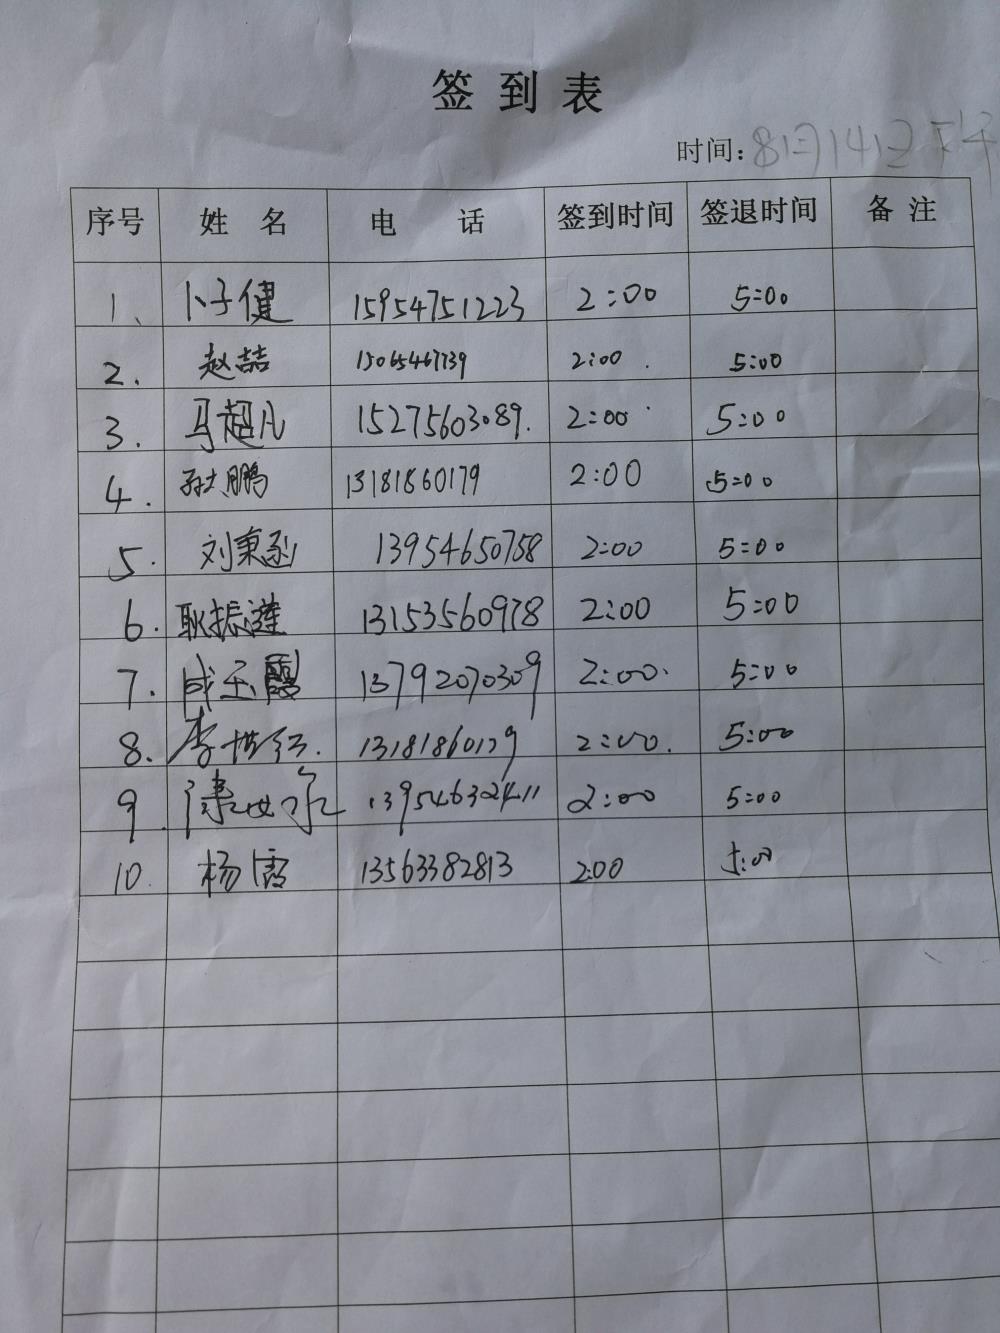 签到表
时间:8月14日下午
序号 姓名 电话 签到时间 签退时间 备注
1、 卜子健 15954751223 2:00 5:00
2. 赵喆 15065467739 2:00 5:00
3. 马超凡 15275603089. 2:00 5:00
4. 孙大鹏 13181860179 2:00 5:00
5. 刘秉函 13954650758 2:00 5:00
6. 耿振涟 13153560978 2:00 5:00
7. 成玉霞 13792070309 2:00. 5:00
8. 李世红. 13181860179 2:00. 5:00
9. 13954632411 2:00 5:00
10. 杨霞 13563382813 2:00 5:00